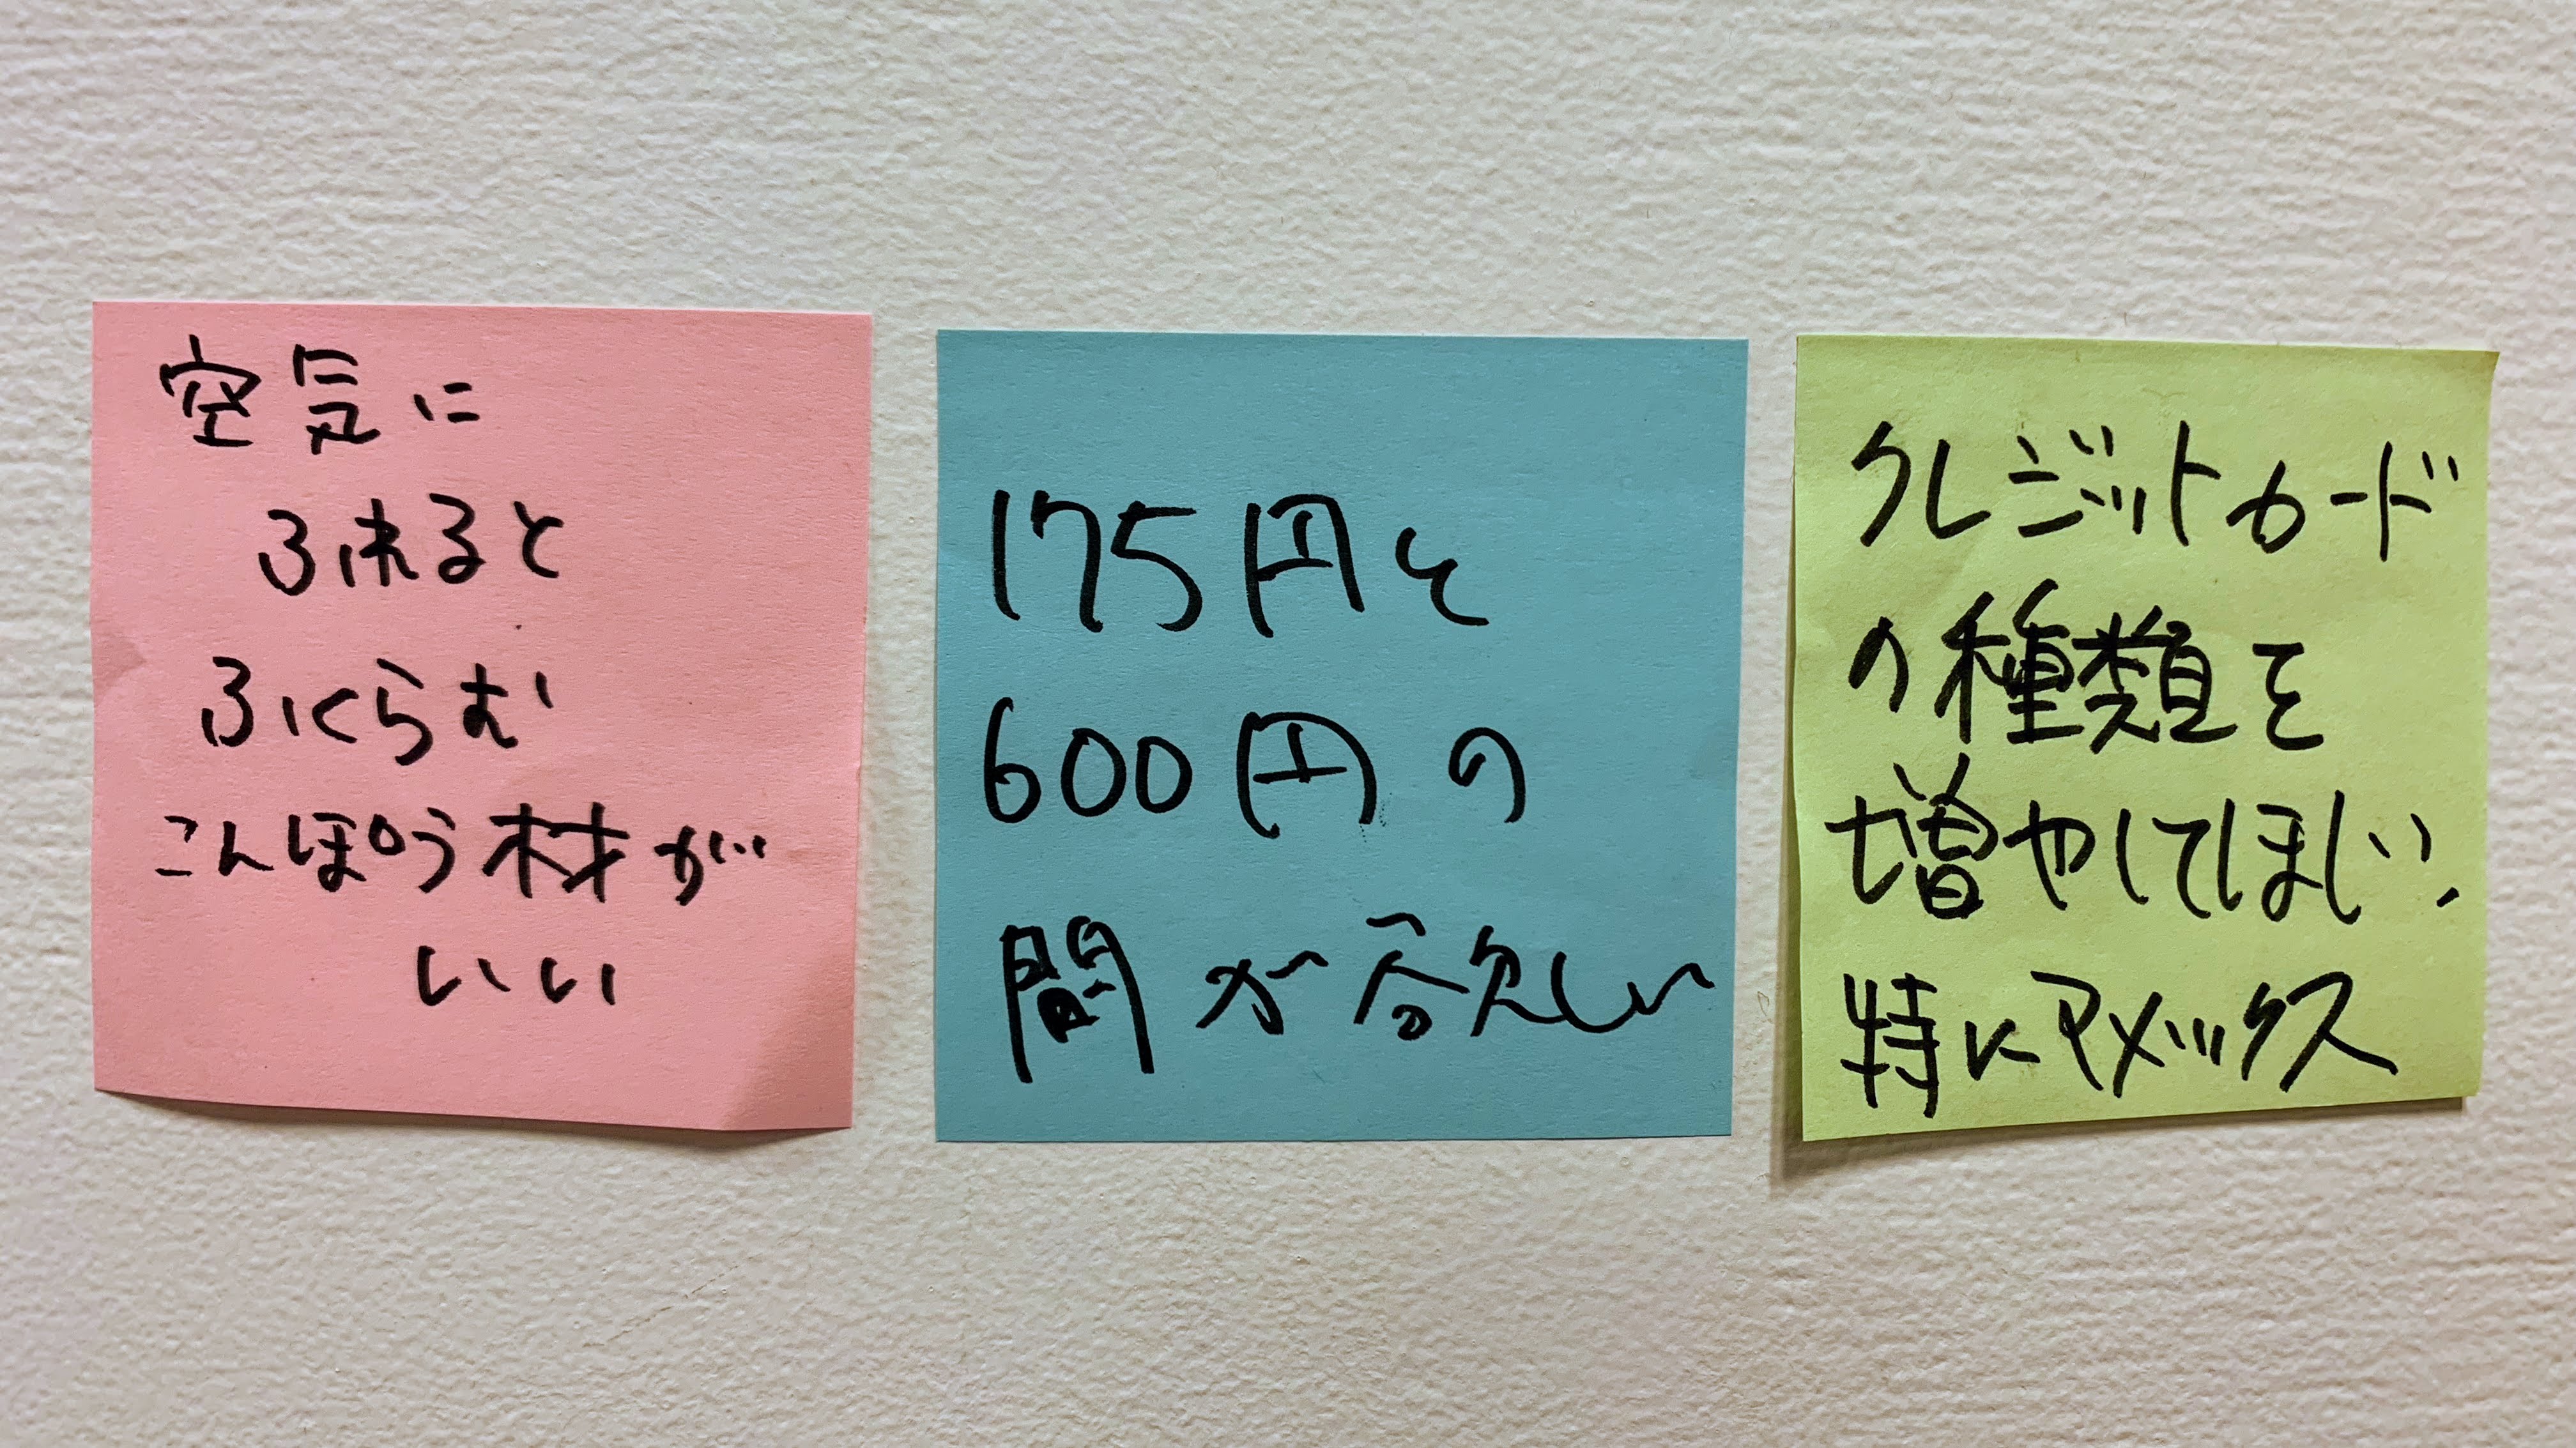 空気に
ふれると
ふくらむ
こんぽう材が
いい
175円と
600円の
間が欲しい
クレジットカード
の種類を
増やしてほしい、
特にアメックス